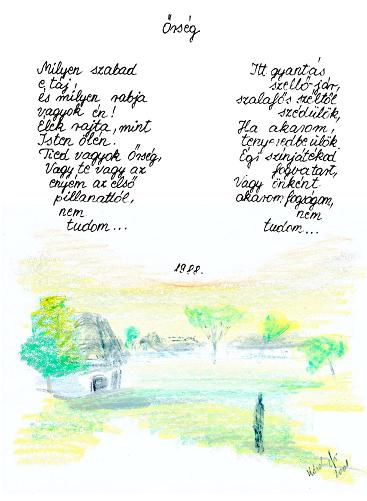 Őrség
Milyen szabad
e táj,
és milyen rabja
vagyok én!
Élek rajta, mint
Isten ölén.
Tied vagyok Őrség,
Vagy te vagy az
enyém az első
pillanattól,
nem
tudom...
Itt gyantás
szellő jár,
szalafős széltől
szédülök,
Ha akarom,
tenyeredbe ülök.
Égi színjátékod
fogva tart,
Vagy önként
akarom fogságom,
nem
tudom...
1988.